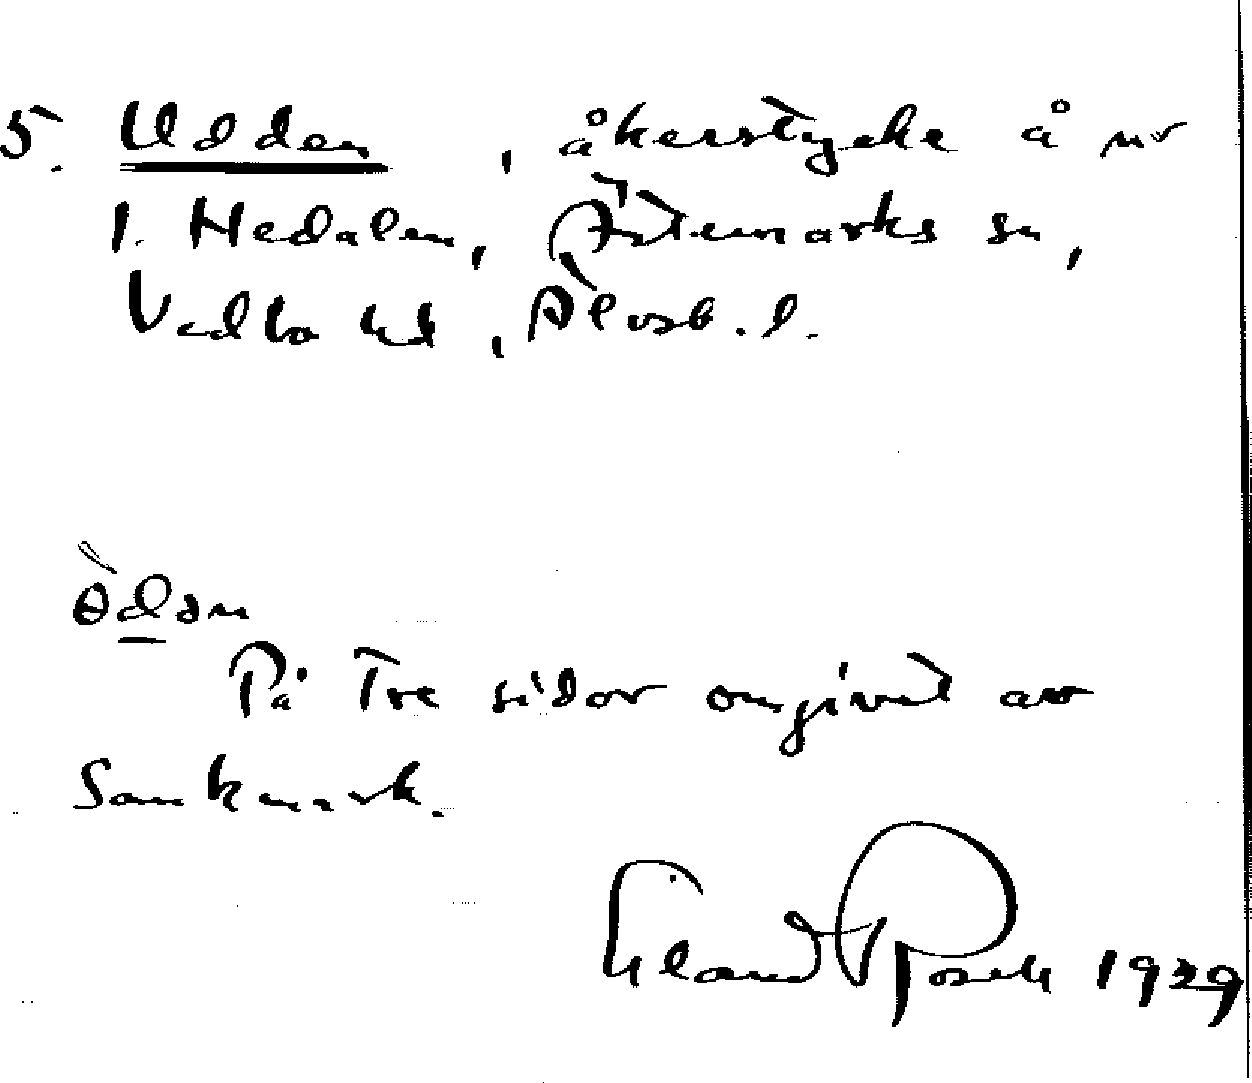 5. Udden, åkerstycke å nr
1. Hedalen, Ärtemarks sn,
Vedbo hd, Älvsb. l.
ə̀dən
På tre sidor omgivet av
sankmark.
Erland Rosell 1929